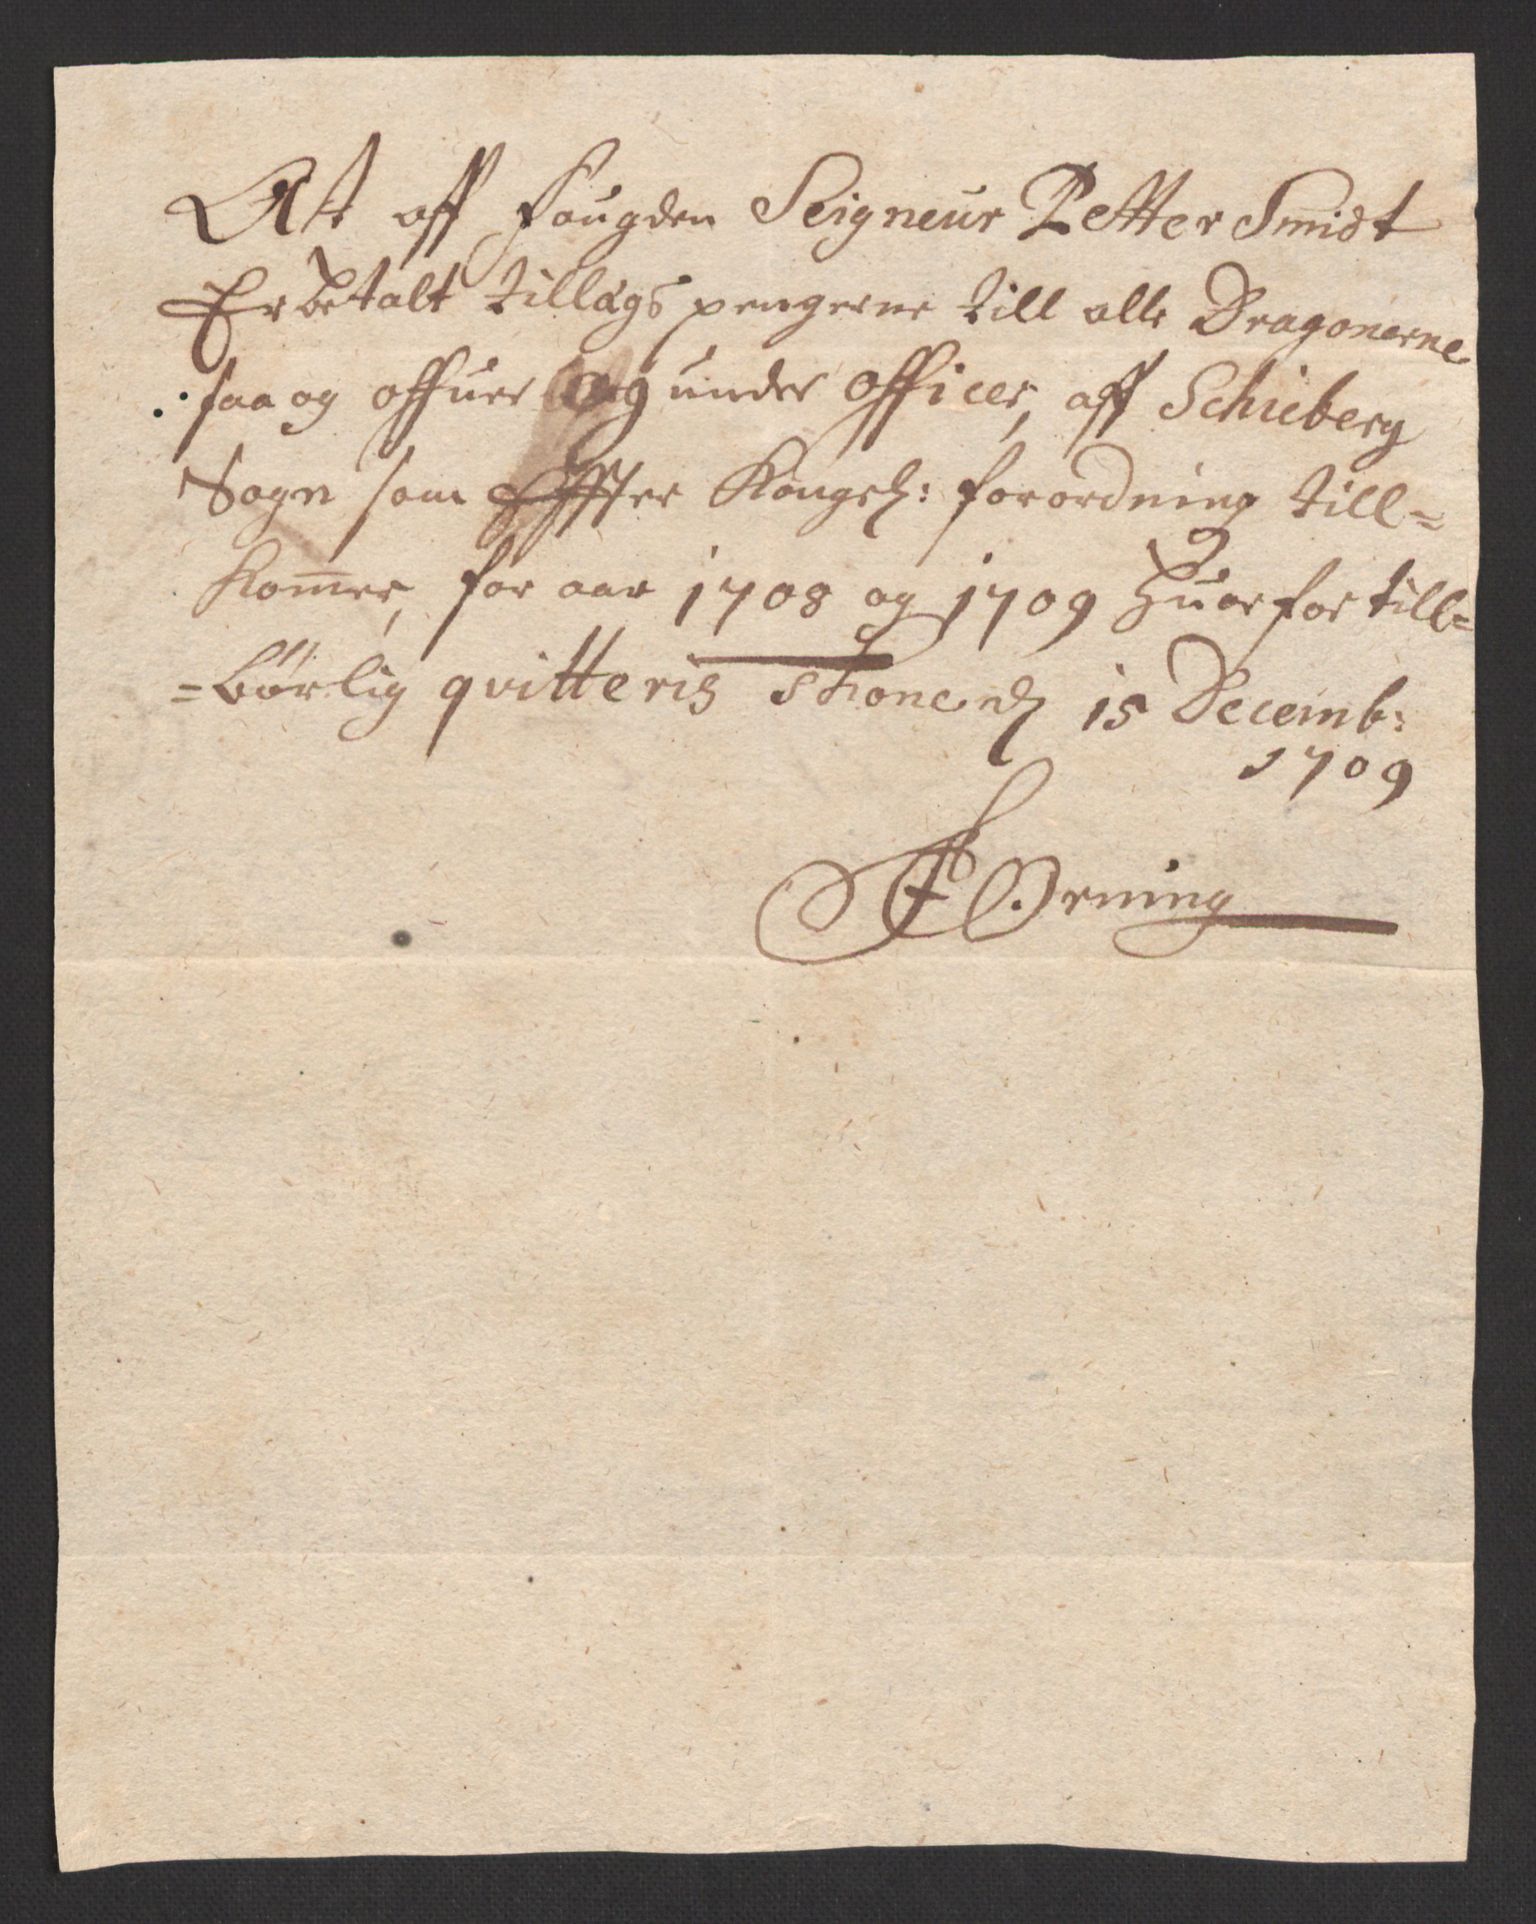 At aff fougden Seigneur Petter Smidt
Er betalt tillægs pengerne till alle Dragonerne
saa og offuer og under officer, aff Schieberg
Sogn som Effter Kongel: forordning till=
Komer, for aar 1708 og 1709 huorfor till=
=børlig qvitteris 15 Decemb:
1709